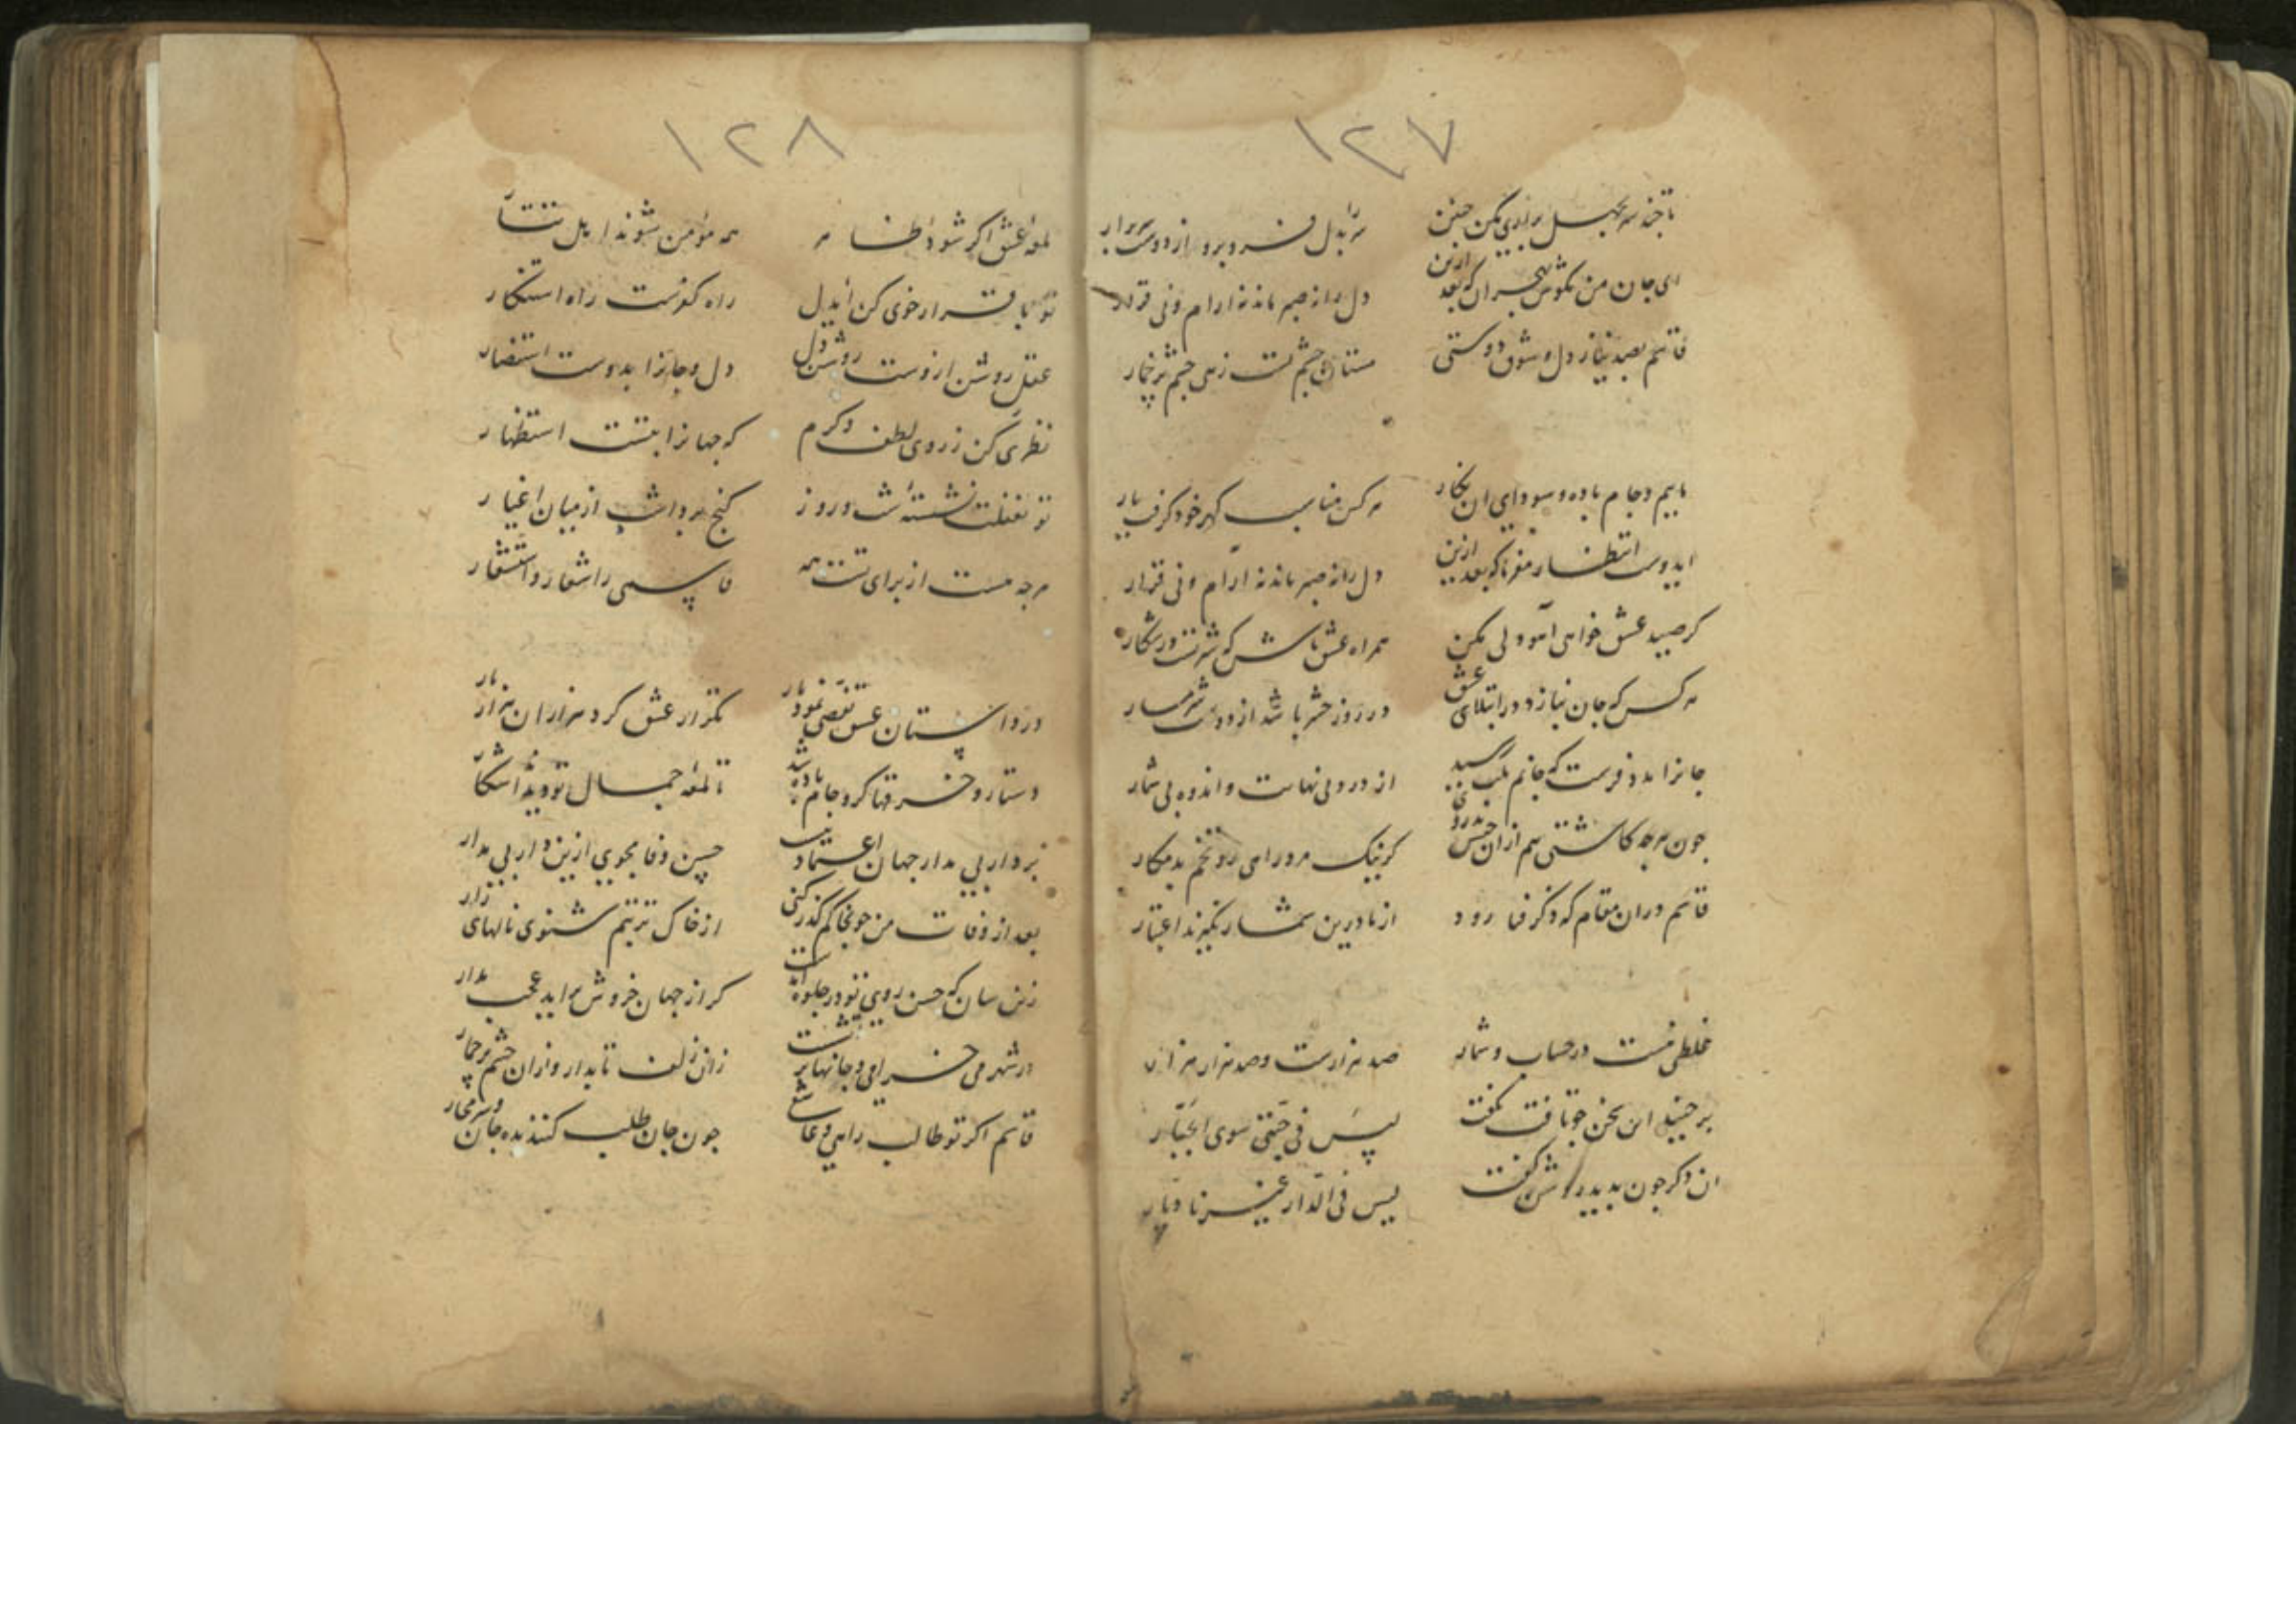 ۱۲۷
تا چند سر بجیل براری مکن چنین    سر را بدل فرو بر و از دوست سر برار
ای جان من مکوش بهجران که بعد ازین    دل را نه صبر ماند نه ارام و نی قرار
قاسم بصد نیاز دل و شوق دوستی    مستان چشم تست زهی چشم پر خمار
ماییم و جام باده و سودای ان نکار    هر کس مناسب کهر خود کرفت یار
ایدوست انتظار مفرما که بعد ازین    دل را نه صبر ماند نه آرام و نی قرار
کر صید عشق خواهی آهو دلی مکن    همراه عشق باش که شیرست در شکار
هر کس که جان نبازد در ابتلای عشق    در روز حشر باشد از دوست شرمسار
جانرا مدد فرست که جانم بلب رسید    از درد بی نهایت و اندوه بی شمار
چون هرچه کاشتی هم از ان جنس بدروی    کر نیک مرد راهی رو تخم بد مکار
قاسم دران مقام که ذکر فنا رود    از ما درین شمار نکیرند اعتبار
غلطی نیست در حساب و شمار    صد هزارست و صد هزار هزار
بر جنید این سخن چو تافت بکفت    لیس فی جبتی سوی الجبار
ان دکر چون بدید روشن کفت    لیس فی الدار غیرنا دیار
۱۲۸
لمعه عشق اکر شود ظاهر    همه مؤمن شوند اهل تتار
تو باقرار خوی کن ایدل    راه کفرست راه استنکار
عقل روشن ازوست روشن دل    دل و جانرا بدوست استنصار
نظری کن ز روی لطف و کرم    که جهانرا بتست استظهار
تو بغفلت نشسته شب و روز    کنج برداشت از میان اغیار
هرچه هست از برای تست همه    قاسمی را شعار و استشعار
در دلستان عشق تفصی نمود یار    تکرار عشق کرد هزاران هزار بار
دستار و خرقها کرو جام باده شد    تا لمعه جمال تو دیده آشکار
بر دار بی مدار جهان اعتماد نیست    حسن وفا مجوی ازین دار بی مدار
بعد از وفات من چو بخاکم کذر کنی    از خاک تربتم شنوی نالهای زار
زین سان که حسن روی تو در جلوه آمدست    کر از جهان خروش براید عجب مدار
در شهر می خرامی و جانها بر آتشست    زان زلف تابدار و ازان چشم پر خمار
قاسم اکر تو طالب راهی و عاشقی    چون جان طلب کنند بده جان و سر مخار